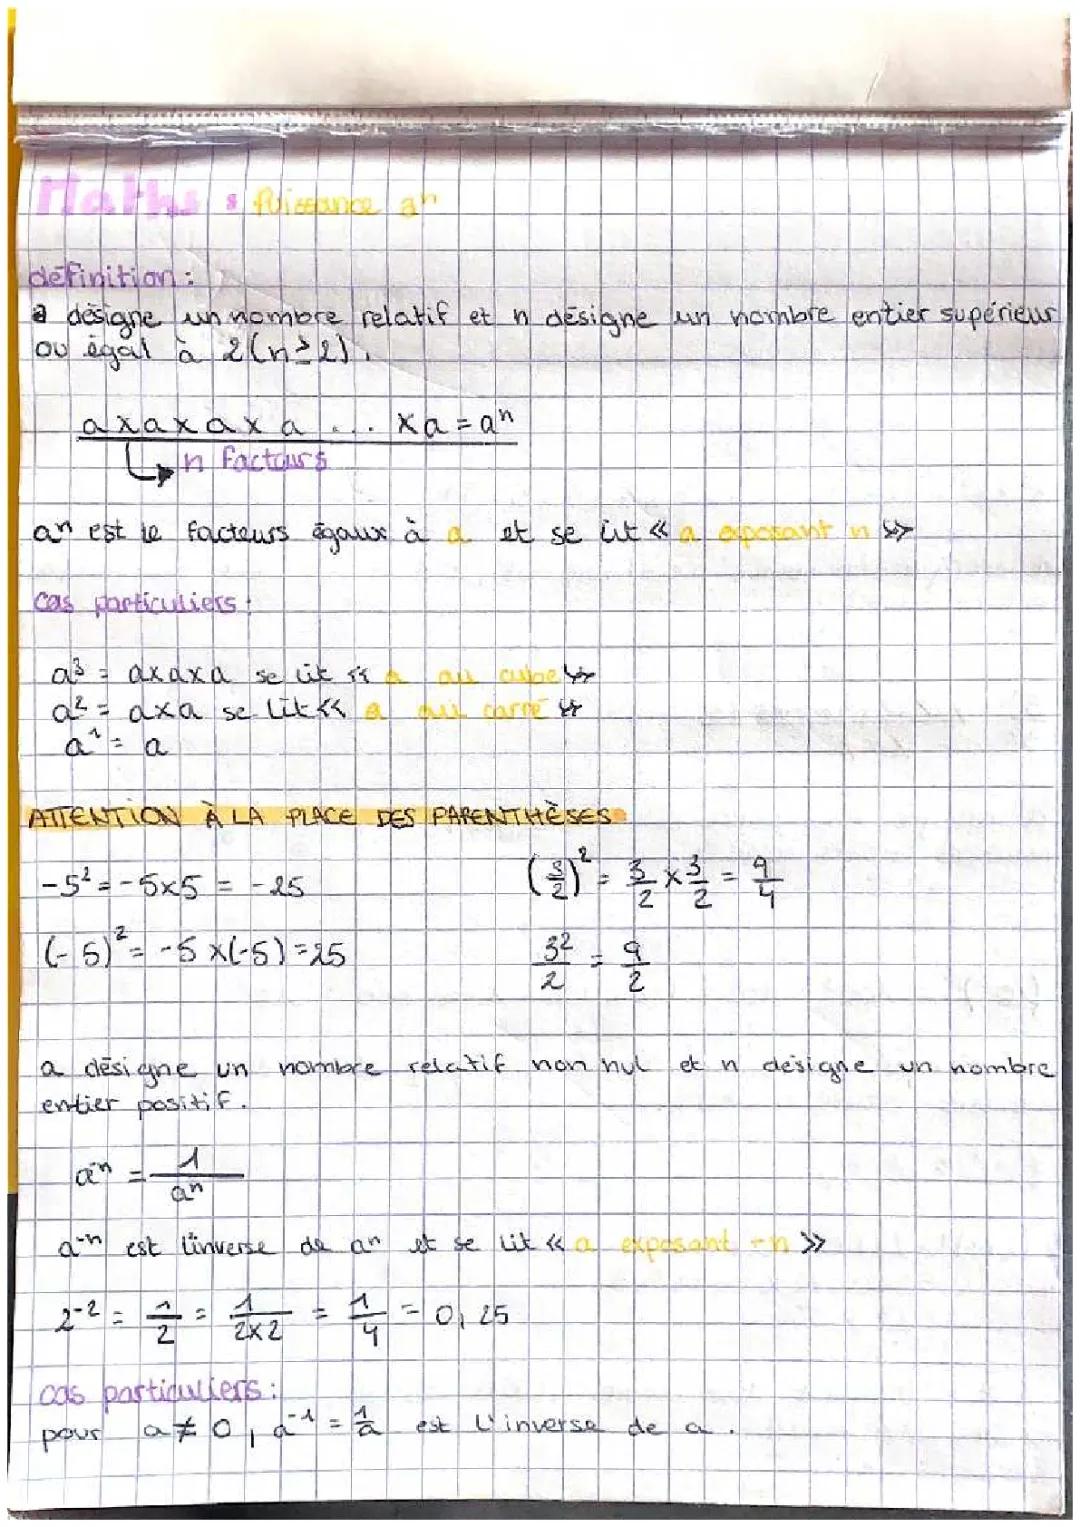 Maths : Puissance aⁿ
définition :
a désigne un nombre relatif et n désigne un nombre entier supérieur
ou égal à 2 (n≥2).
a x a x a x a ... x a = aⁿ
n facteurs
aⁿ est le facteurs égaux à a et se lit « a exposant n »
cas particuliers :
a³ = axaxa se lit « a au cube »
a² = axa se lit « a au carré »
a¹ = a
ATTENTION À LA PLACE DES PARENTHÈSES
-5² = -5x5 = -25
(3/2)² = 3/2 x 3/2 = 9/4
(-5)² = -5 x(-5) = 25
3²/2 = 9/2
a désigne un nombre relatif non nul et n désigne un nombre
entier positif.
a⁻ⁿ = 1/aⁿ
a⁻ⁿ est l'inverse de aⁿ et se lit « a exposant -n »
2⁻² = 1/2 = 1/2x2 = 1/4 = 0,25
cas particuliers :
pour a ≠ 0, a⁻¹ = 1/a est l'inverse de a.